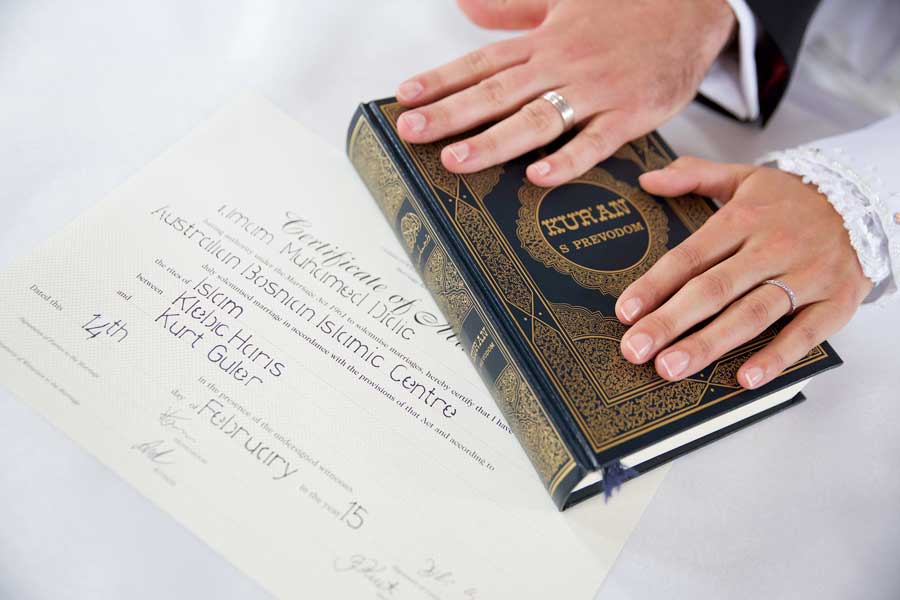 Certificate of
I, Imam Muhamed Dlalic
having authority under the Marriage Act 1961 to solemnise marriages, hereby certify that I have
Australian Bosnian Islamic Centre
duly solemnised marriage in accordance with the provisions of that Act and according to
the rites of Islam
between Klebic Haris
and Kurt Guler
in the presence of the undersigned witnesses.
Dated this 14th day of February in the year 15
KUR'AN
S PREVODOM
KUR'AN
S PREVODOM